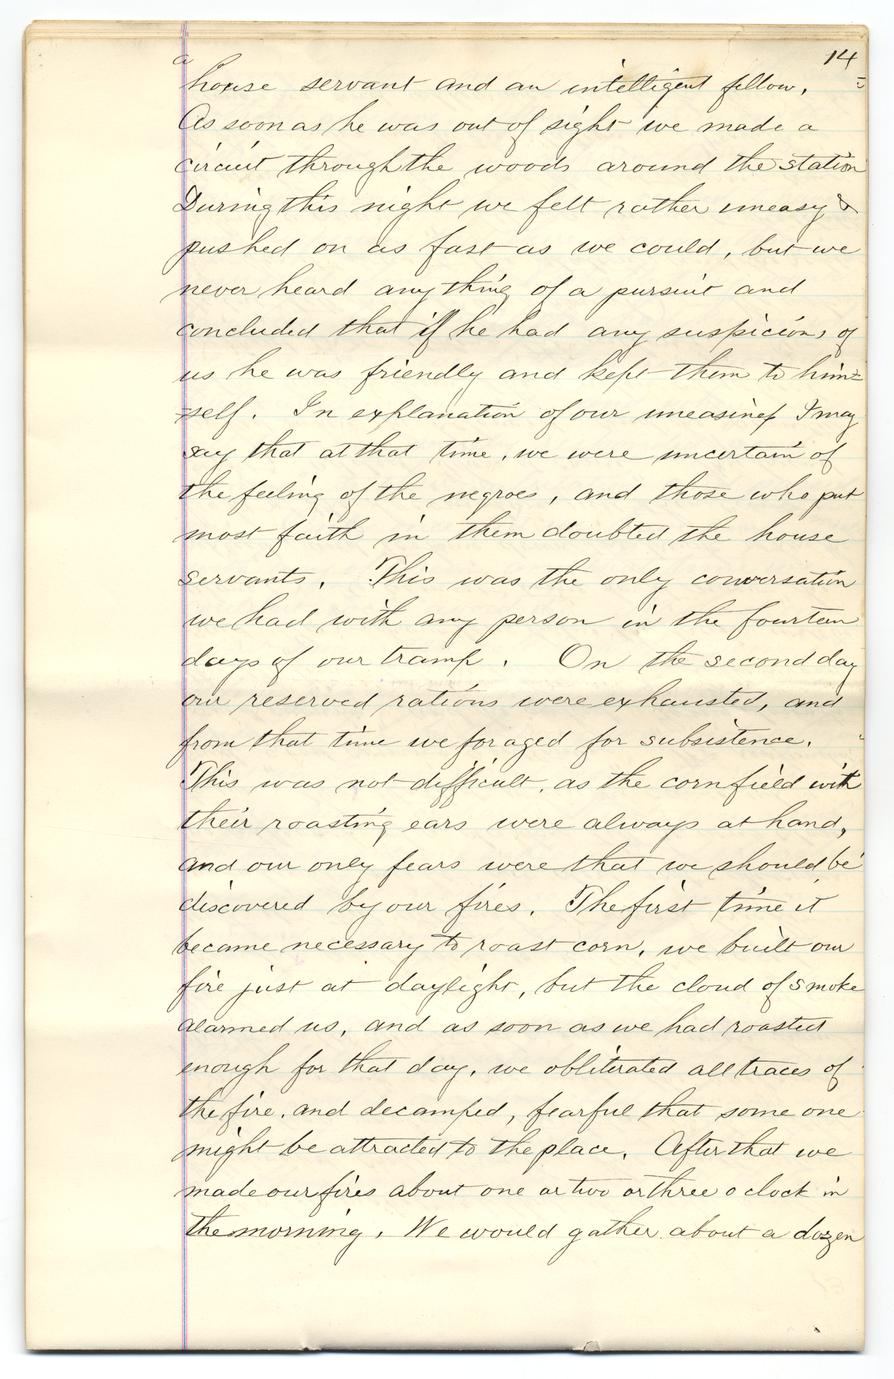 14
a
house servant and an intelligent fellow.
As soon as he was out of sight we made a
circuit through the woods around the station
During this night we felt rather uneasy &
pushed on as fast as we could, but we
never heard anything of a pursuit and
concluded that if he had any suspicions of
us he was friendly and kept them to him=
=self. In explanation of our uneasiness I may
say that at that time, we were uncertain of
the feeling of the negroes, and those who put
most faith in them doubted the house
servants. This was the only conversation
we had with any person in the fourteen
days of our tramp. On the second day
our reserved rations were exhausted, and
from that time we foraged for subsistence.
This was not difficult, as the cornfield with
their roasting ears were always at hand,
and our only fears were that we should be
discovered by our fires. The first time it
became necessary to roast corn, we built our
fire just at daylight, but the cloud of smoke
alarmed us, and as soon as we had roasted
enough for that day, we obliterated all traces of
the fire, and decamped, fearful that some one
might be attracted to the place. After that we
made our fires about one or two or three o clock in
the morning. We would gather about a dozen